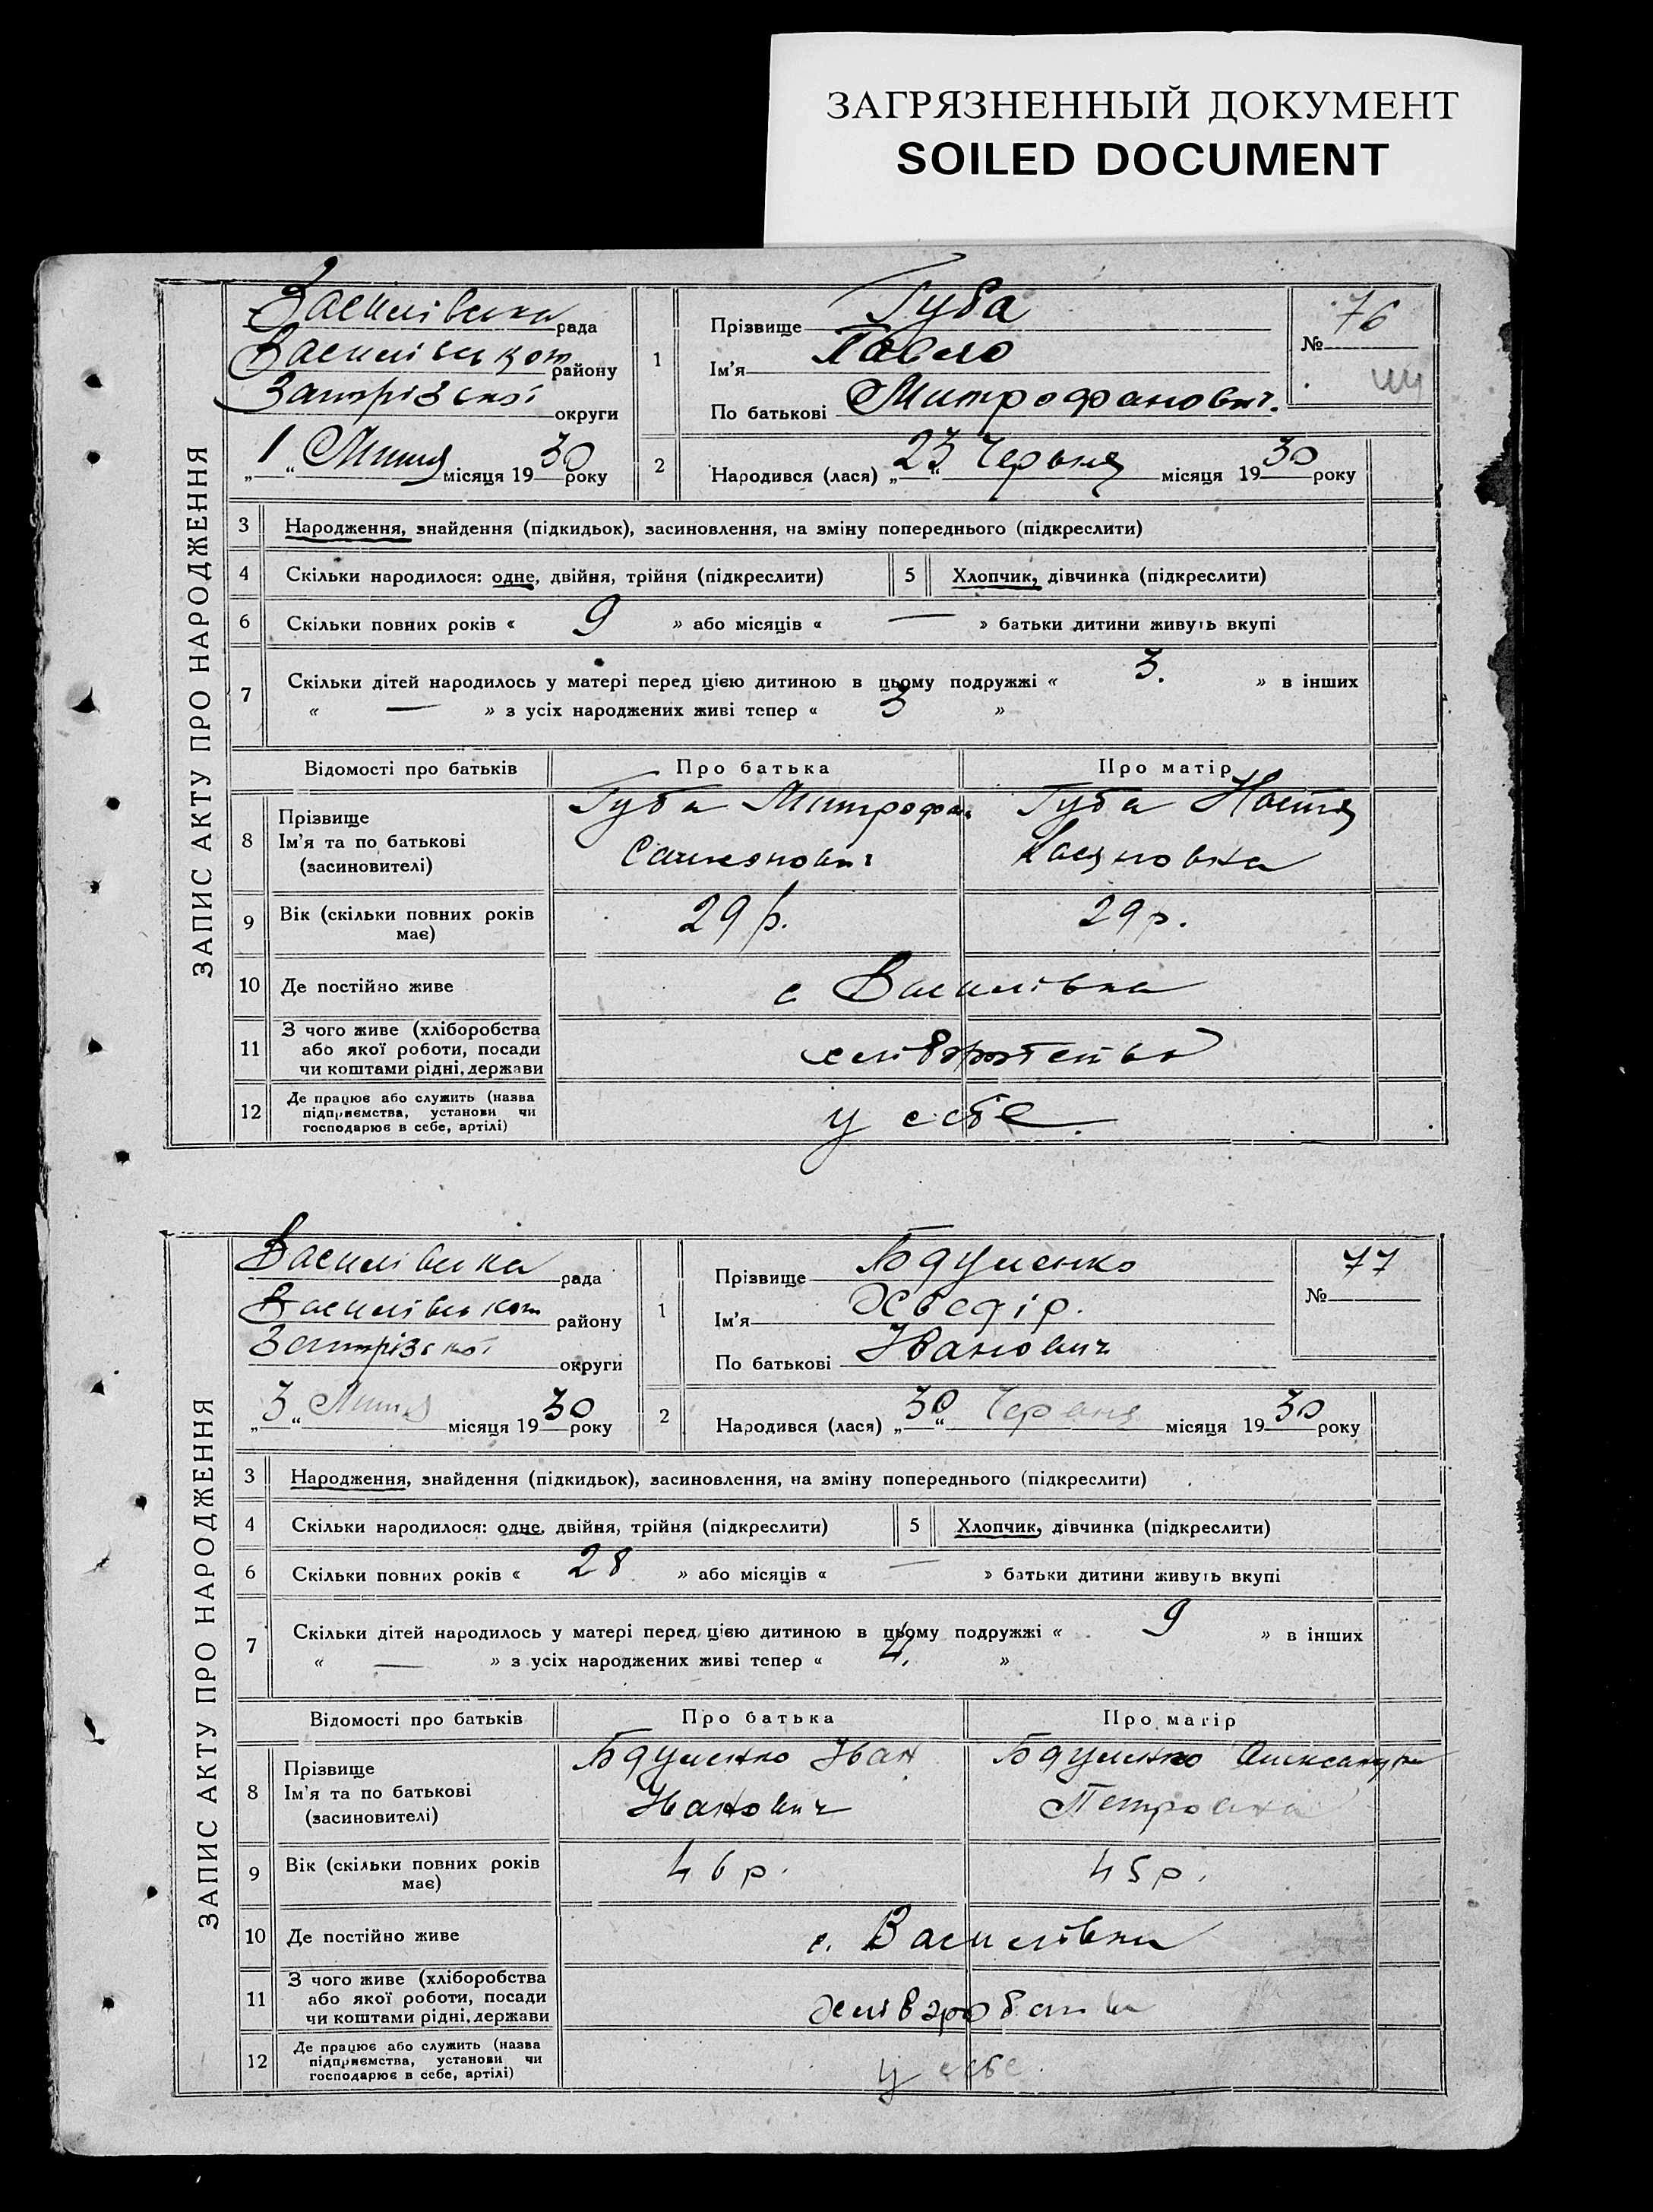 ЗАГРЯЗНЕННЫЙ ДОКУМЕНТ
SOILED DOCUMENT
ЗАПИС АКТУ ПРО НАРОДЖЕННЯ
Василівська рада
Василівськом району
Запорізської округи
„ 1 “ Липня місяця 19 30 року
1
Прізвище Губа
Ім'я Павло
По батькові Митрофанович.
№ 76
2
Народився (лася) „ 23 “ Червня місяця 19 30 року
3 Народження, знайдення (підкидьок), засиновлення, на зміну попереднього (підкреслити)
4 Скільки народилося: одне, двійня, трійня (підкреслити) 5 Хлопчик, дівчинка (підкреслити)
6 Скільки повних років « 9 » або місяців « — » батьки дитини живуть вкупі
7 Скільки дітей народилось у матері перед цією дитиною в цьому подружжі « 3. » в інших
« — » з усіх народжених живі тепер « 3 »
Відомості про батьків Про батька Про матір
8 Прізвище
Ім'я та по батькові
(засиновителі)
Губа Митрофан
Губа Настя
9 Вік (скільки повних років
має)
29 р. 29 р.
10 Де постійно живе с Василівка
11 З чого живе (хліборобства
або якої роботи, посади
чи коштами рідні, держави
хліборобство
12 Де працює або служить (назва
підприємства, установи чи
господарює в себе, артілі)
у себе.
ЗАПИС АКТУ ПРО НАРОДЖЕННЯ
Василівська рада
Василівськом району
Запорізської округи
„ 3 “ Липня місяця 19 30 року
1
Прізвище Бдуленко
Ім'я Хведір.
По батькові Іванович
№ 77
2
Народився (лася) „ 30 “ Червня місяця 19 30 року
3 Народження, знайдення (підкидьок), засиновлення, на зміну попереднього (підкреслити)
4 Скільки народилося: одне, двійня, трійня (підкреслити) 5 Хлопчик, дівчинка (підкреслити)
6 Скільки повних років « 28 » або місяців « — » батьки дитини живуть вкупі
7 Скільки дітей народилось у матері перед цією дитиною в цьому подружжі « 9 » в інших
« — » з усіх народжених живі тепер « 4. »
Відомості про батьків Про батька Про матір
8 Прізвище
Ім'я та по батькові
(засиновителі)
Бдуленко Іван
Іванович
Бдуленко Олександра
Петровна
9 Вік (скільки повних років
має)
46 р. 45 р.
10 Де постійно живе с. Василівка
11 З чого живе (хліборобства
або якої роботи, посади
чи коштами рідні, держави
хліборобства
12 Де працює або служить (назва
підприємства, установи чи
господарює в себе, артілі)
у себе